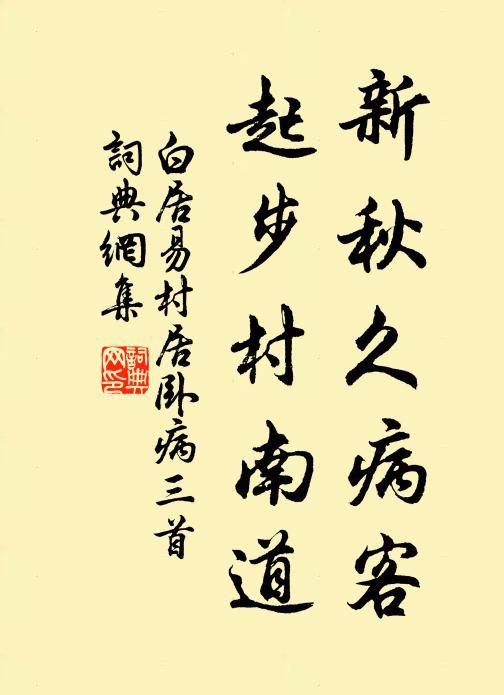 新秋久病客
起步村南道
白居易村居卧病三首
詞典網集
詞典網印